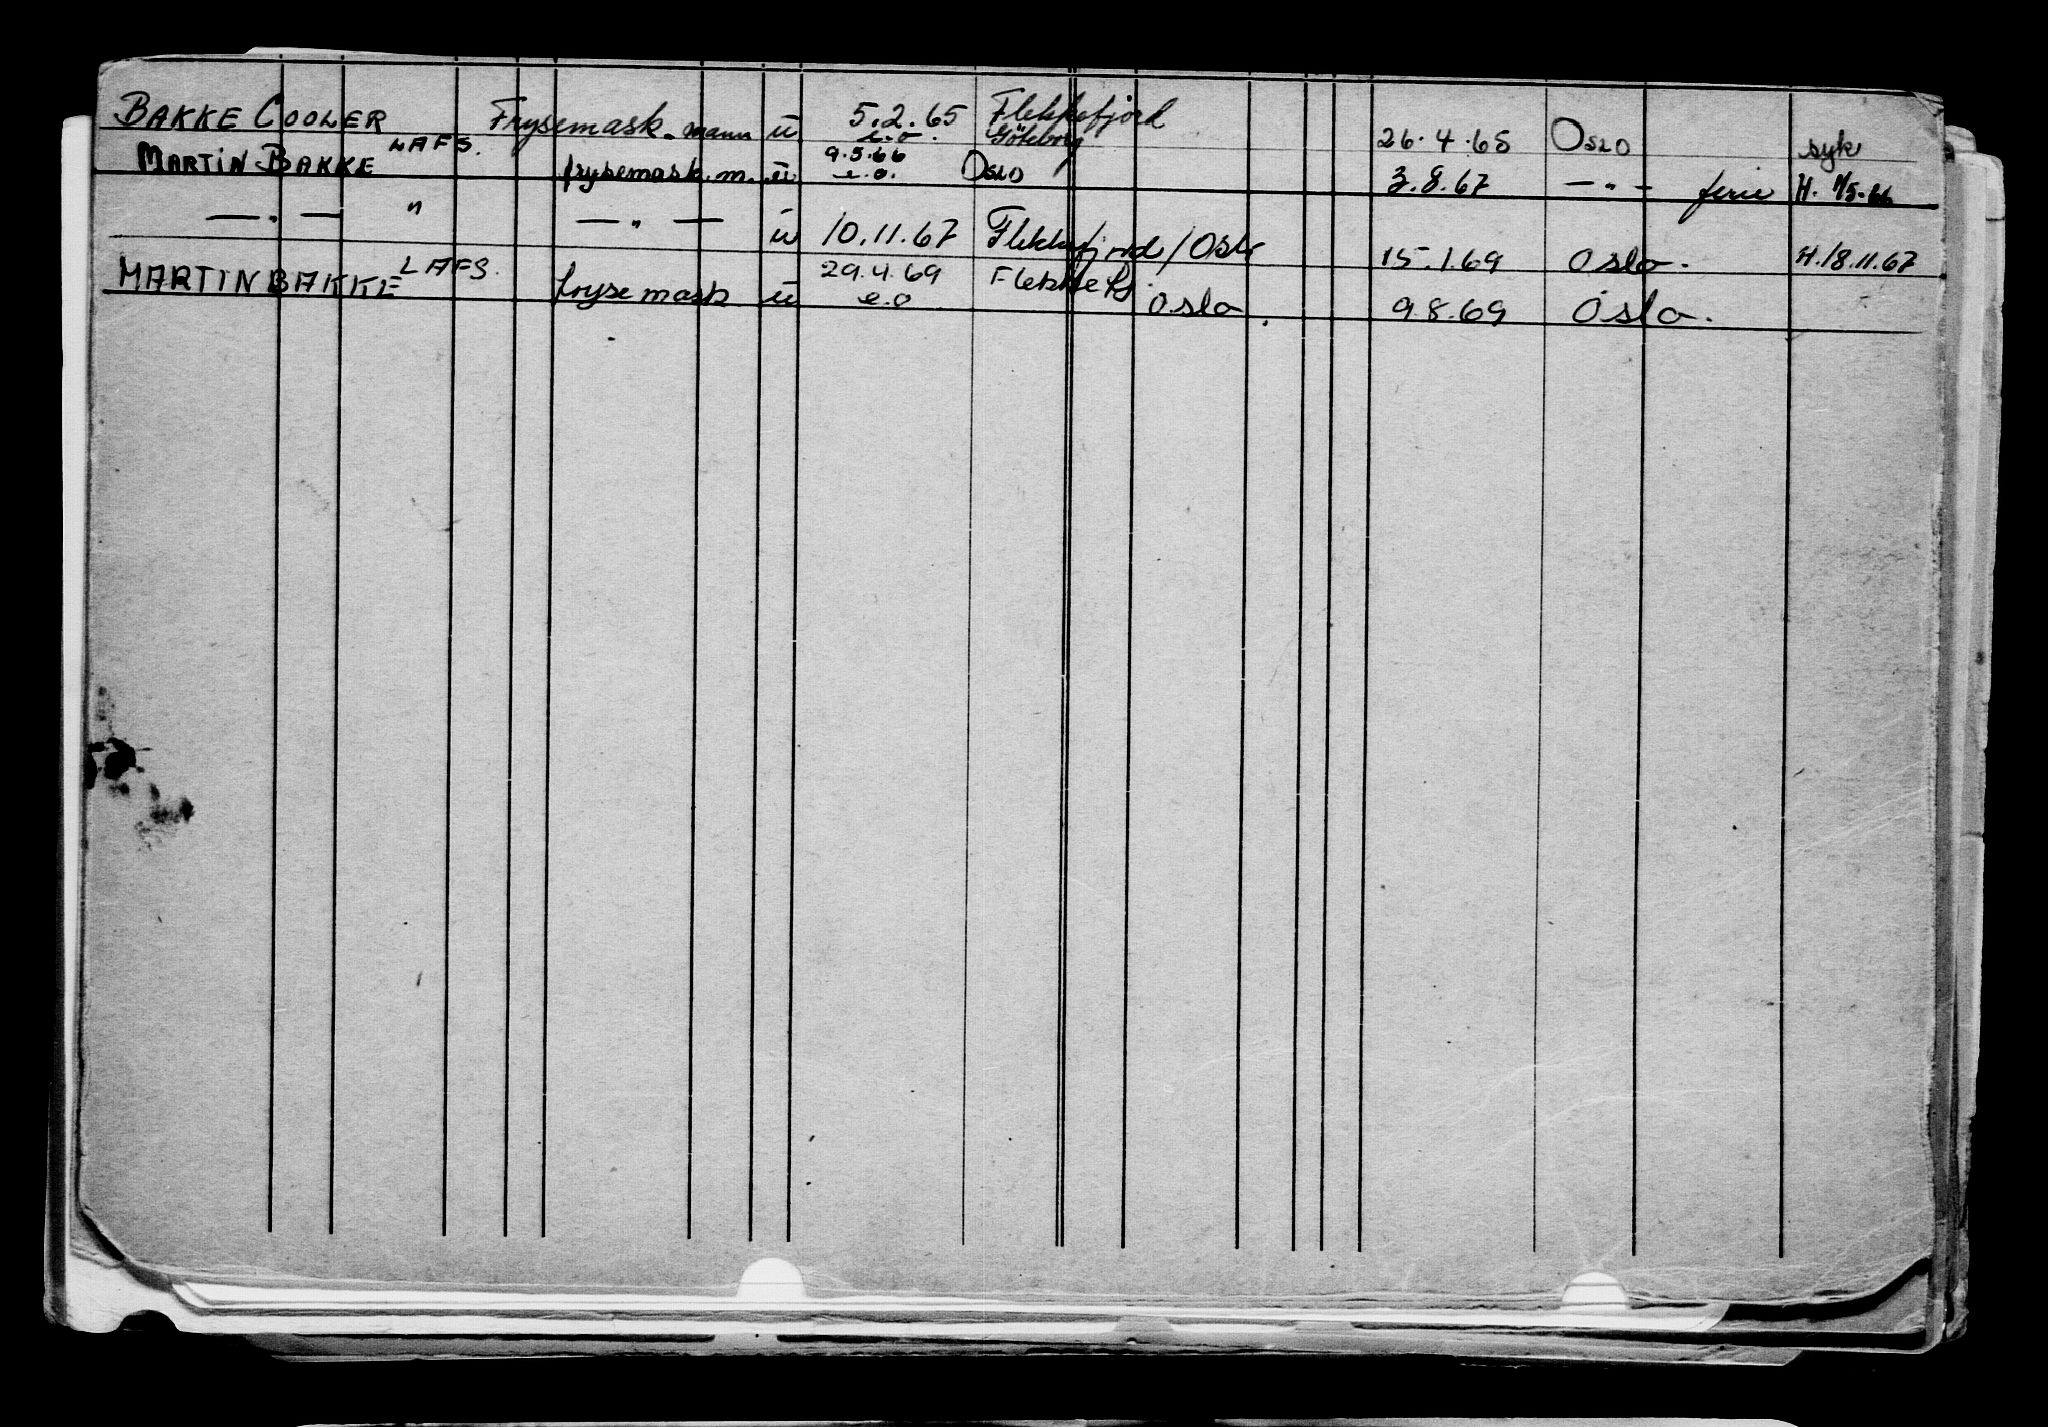 BAKKE COOLER Frysemask.mann ū 5.2.65 e.o. Flekkefjord Göteborg 26.4.65 Oslo syk
MARTIN BAKKE LAFS. frysemask.m. ū 9.5.66 e.o. Oslo 3.8.67 — " — ferie H. 1/5-66
— " — " — " — ū 10.11.67 Flekkefjord/Oslo 15.1.69 Oslo. H.18.11.67
MARTIN BAKKE LAFS. frysemask ū 29.4.69 e.o Flekkefj. Oslo. 9.8.69 Oslo.